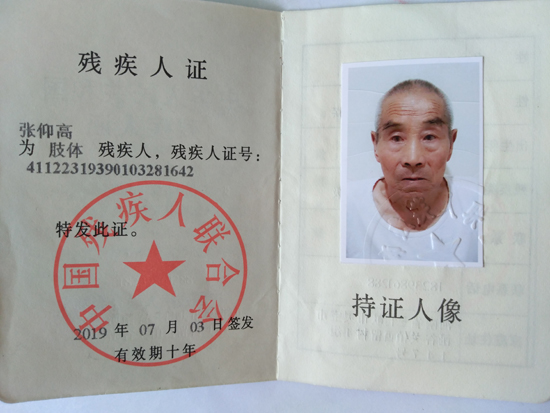 残疾人证
张仰高
为 肢体 残疾人，残疾人证号：
41122319390103281642
特发此证。
中国残疾人联合会
2019 年 07 月 03 日签发
有效期十年
持证人像